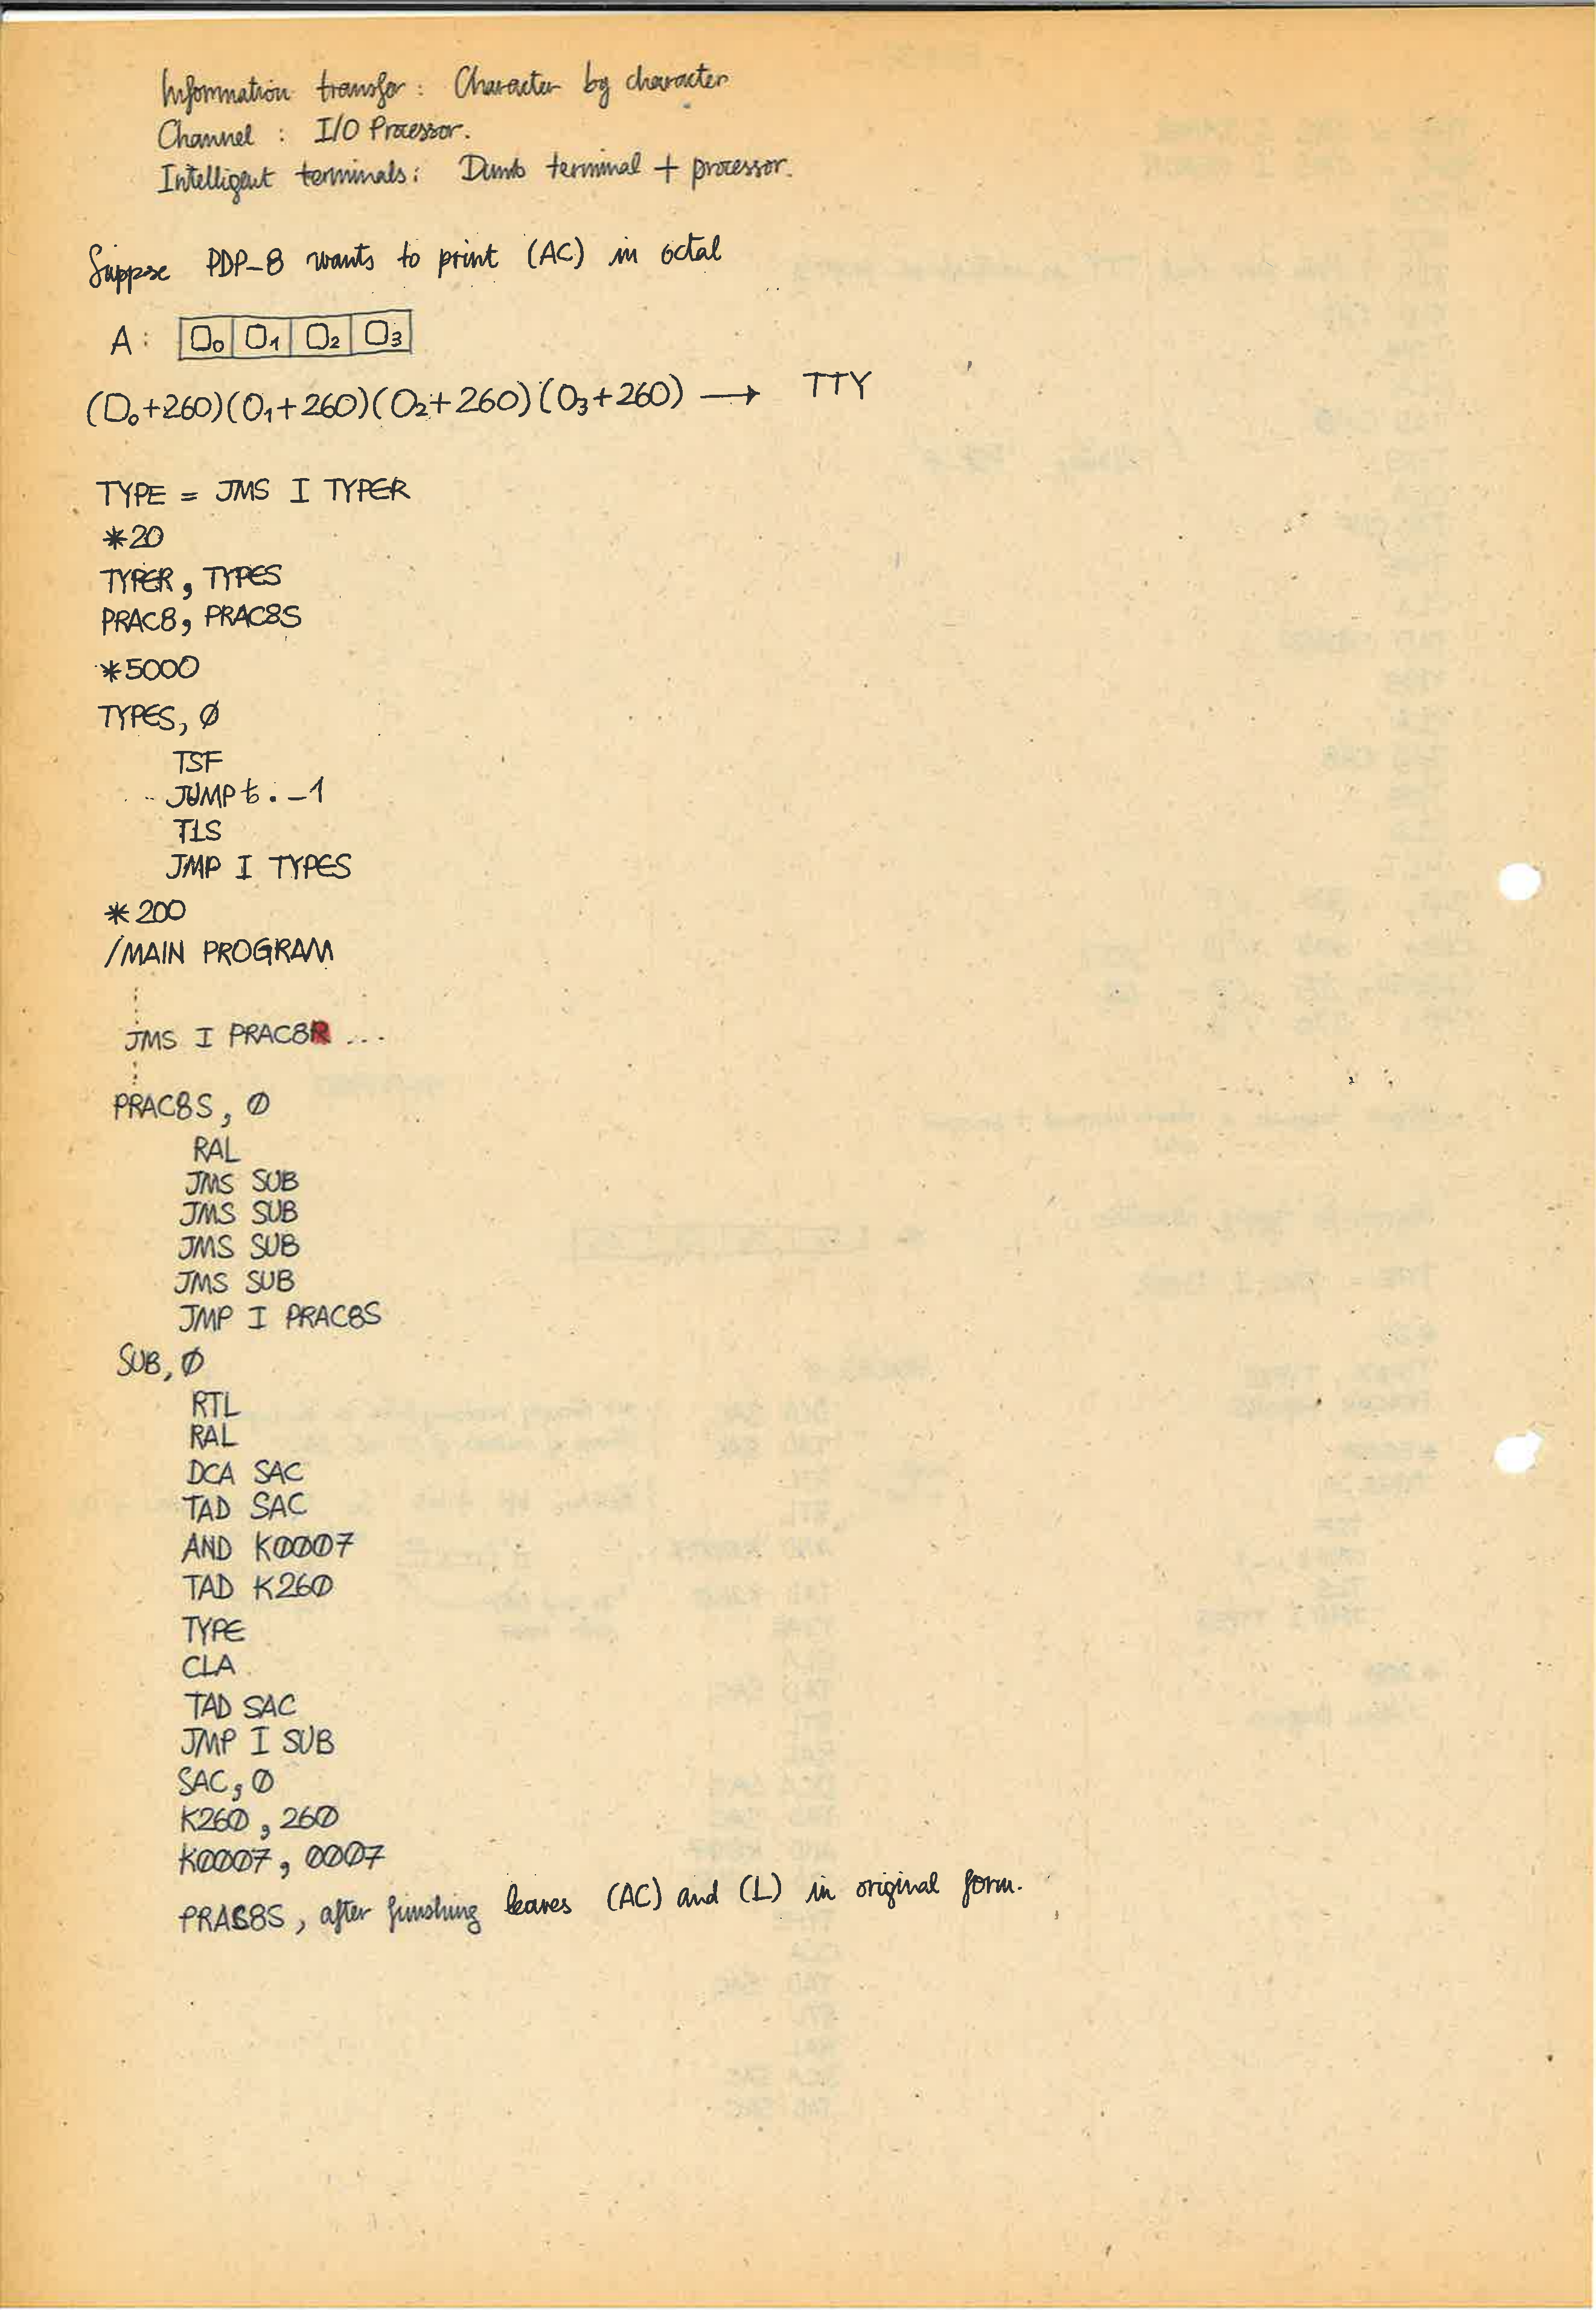 Information transfer: Character by character
Channel : I/O Processor.
Intelligent terminals: Dumb terminal + processor.
Suppose PDP-8 wants to print (AC) in octal
A: O₀ O₁ O₂ O₃
(O₀+260)(O₁+260)(O₂+260)(O₃+260) → TTY
TYPE = JMS I TYPER
*20
TYPER, TYPES
PRAC8, PRAC8S
*5000
TYPES, Ø
TSF
JUMP .-1
TLS
JMP I TYPES
*200
/MAIN PROGRAM
JMS I PRAC8R ...
PRAC8S, Ø
RAL
JMS SUB
JMS SUB
JMS SUB
JMS SUB
JMP I PRAC8S
SUB, Ø
RTL
RAL
DCA SAC
TAD SAC
AND KØØØ7
TAD K26Ø
TYPE
CLA
TAD SAC
JMP I SUB
SAC, Ø
K26Ø, 26Ø
KØØØ7, ØØØ7
PRAC8S, after finishing leaves (AC) and (L) in original form.